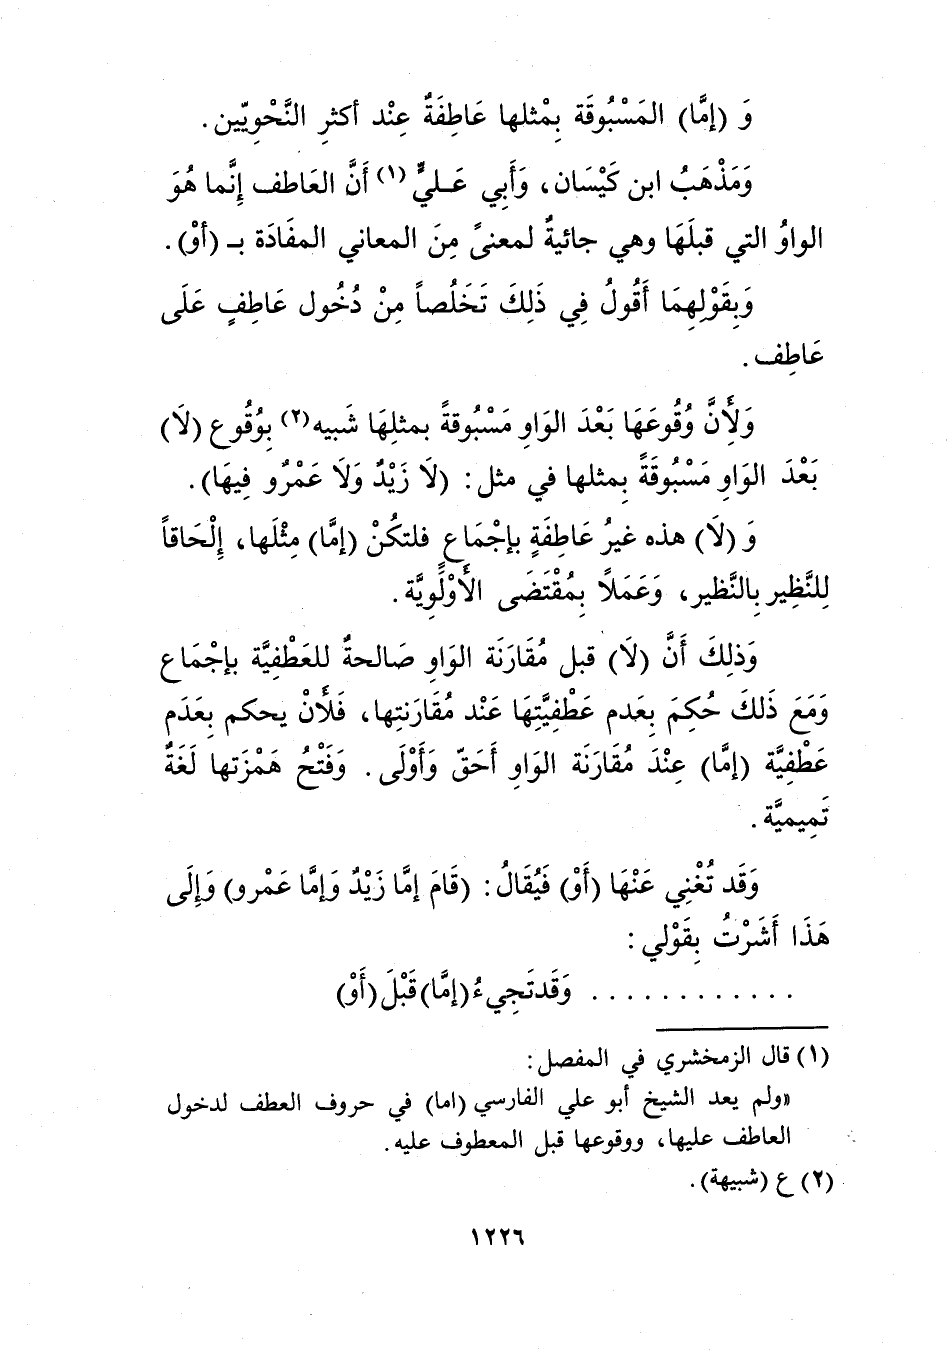 وَ (إمَّا) المَسْبُوقَة بِمْثلها عَاطِفَةٌ عِنْد أكثرِ النَّحْوِيّين.
وَمَذْهَبُ ابن كَيْسَان، وَأَبِي عَـليٍّ (١) أَنَّ العَاطف إنَّما هُوَ
الواوُ التي قبلَهَا وهي جائيةٌ لمعنىً مِنَ المعاني المفَادَة بـ (أوْ).
وَبِقَوْلِهِمَا أَقُولُ فِي ذَلِكَ تَخَلُصاً مِنْ دُخُول عَاطِفٍ عَلَى
عَاطِف.
وَلأَنَّ وُقُوعَهَا بَعْدَ الوَاوِ مَسْبُوقةً بمثلِهَا شَبيه (٢) بِوُقُوع (لَا)
بَعْدَ الوَاوِ مَسْبُوقَةً بِمثلها في مثل: (لَا زَيْدٌ وَلَا عَمْرٌو فِيهَا).
وَ (لَا) هذه غيرُ عَاطِفَةٍ بإجْمَاع فلتكُنْ (إمَّا) مِثْلَها، إِلْحَاقاً
لِلنَّظِير بِالنَّظير، وَعَمَلًا بِمُقْتَضَى الأَوْلَوِيَّة.
وَذلِكَ أَنَّ (لَا) قبل مُقَارَنَة الوَاوِ صَالحةٌ للعَطْفِيَّة بإجْمَاع
وَمَعَ ذَلكَ حُكِمَ بِعَدم عَطْفِيَّتِهَا عَنْد مُقَارَنتِها، فَلَأنْ يحكم بِعَدَم
عَطْفِيَّة (إمَّا) عِنْدَ مُقَارَنَة الوَاوِ أَحَقّ وَأَوْلَى. وَفَتْحُ هَمْزَتها لَغَةٌ
تَمِيميَّة.
وَقَد تُغْنِي عَنْهَا (أَوْ) فَيُقَالُ: (قَامَ إمَّا زَيْدٌ وَإمَّا عَمْرو) وَإِلَى
هَذَا أَشَرْتُ بِقَوْلي:
............ وَقَدتَجِيءُ (إمَّا) قَبْلَ (أَوْ)
(١) قال الزمخشري في المفصل:
«ولم يعد الشيخ أبو علي الفارسي (اما) في حروف العطف لدخول
العاطف عليها، ووقوعها قبل المعطوف عليه.
(٢) ع (شبيهة).
١٢٢٦